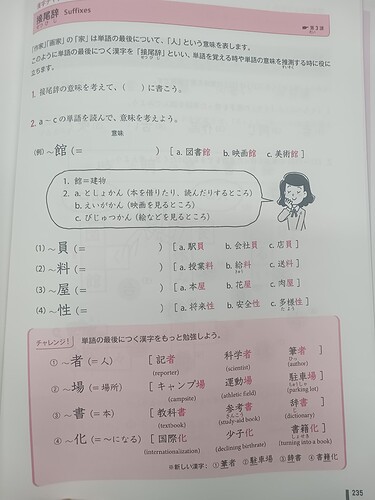 接尾辞 Suffixes
第3課
「作家」「画家」の「家」は単語の最後について、「人」という意味を表します。
このように単語の最後につく漢字を「接尾辞」といい、単語を覚える時や単語の意味を推測する時に役に
せつびじ
すいそく
立ちます。
1. 接尾辞の意味を考えて、( )に書こう。
2. a～cの単語を読んで、意味を考えよう。
意味
(例) ～館 (= ) [ a. 図書館 b. 映画館 c. 美術館 ]
1. 館＝建物
2. a. としょかん(本を借りたり、読んだりするところ)
b. えいがかん(映画を見るところ)
c. びじゅつかん(絵などを見るところ)
(1) ～員 (= ) [ a. 駅員 b. 会社員 c. 店員 ]
(2) ～料 (= ) [ a. 授業料 b. 給料 c. 送料 ]
きゅう
(3) ～屋 (= ) [ a. 本屋 b. 花屋 c. 肉屋 ]
(4) ～性 (= ) [ a. 将来性 b. 安全性 c. 多様性 ]
たよう
チャレンジ! 単語の最後につく漢字をもっと勉強しよう。
① ～者 (= 人) [ 記者 科学者 筆者 ]
ひっ
(reporter) (scientist) (author)
② ～場 (= 場所) [ キャンプ場 運動場 駐車場 ]
ちゅうしゃ
(campsite) (athletic field) (parking lot)
③ ～書 (= 本) [ 教科書 参考書 辞書 ]
さんこう
(textbook) (study-aid book) (dictionary)
④ ～化 (= ～になる) [ 国際化 少子化 書籍化 ]
しょせき
(internationalization) (declining birthrate) (turning into a book)
※新しい漢字：①筆者 ②駐車場 ③辞書 ④書籍化
235